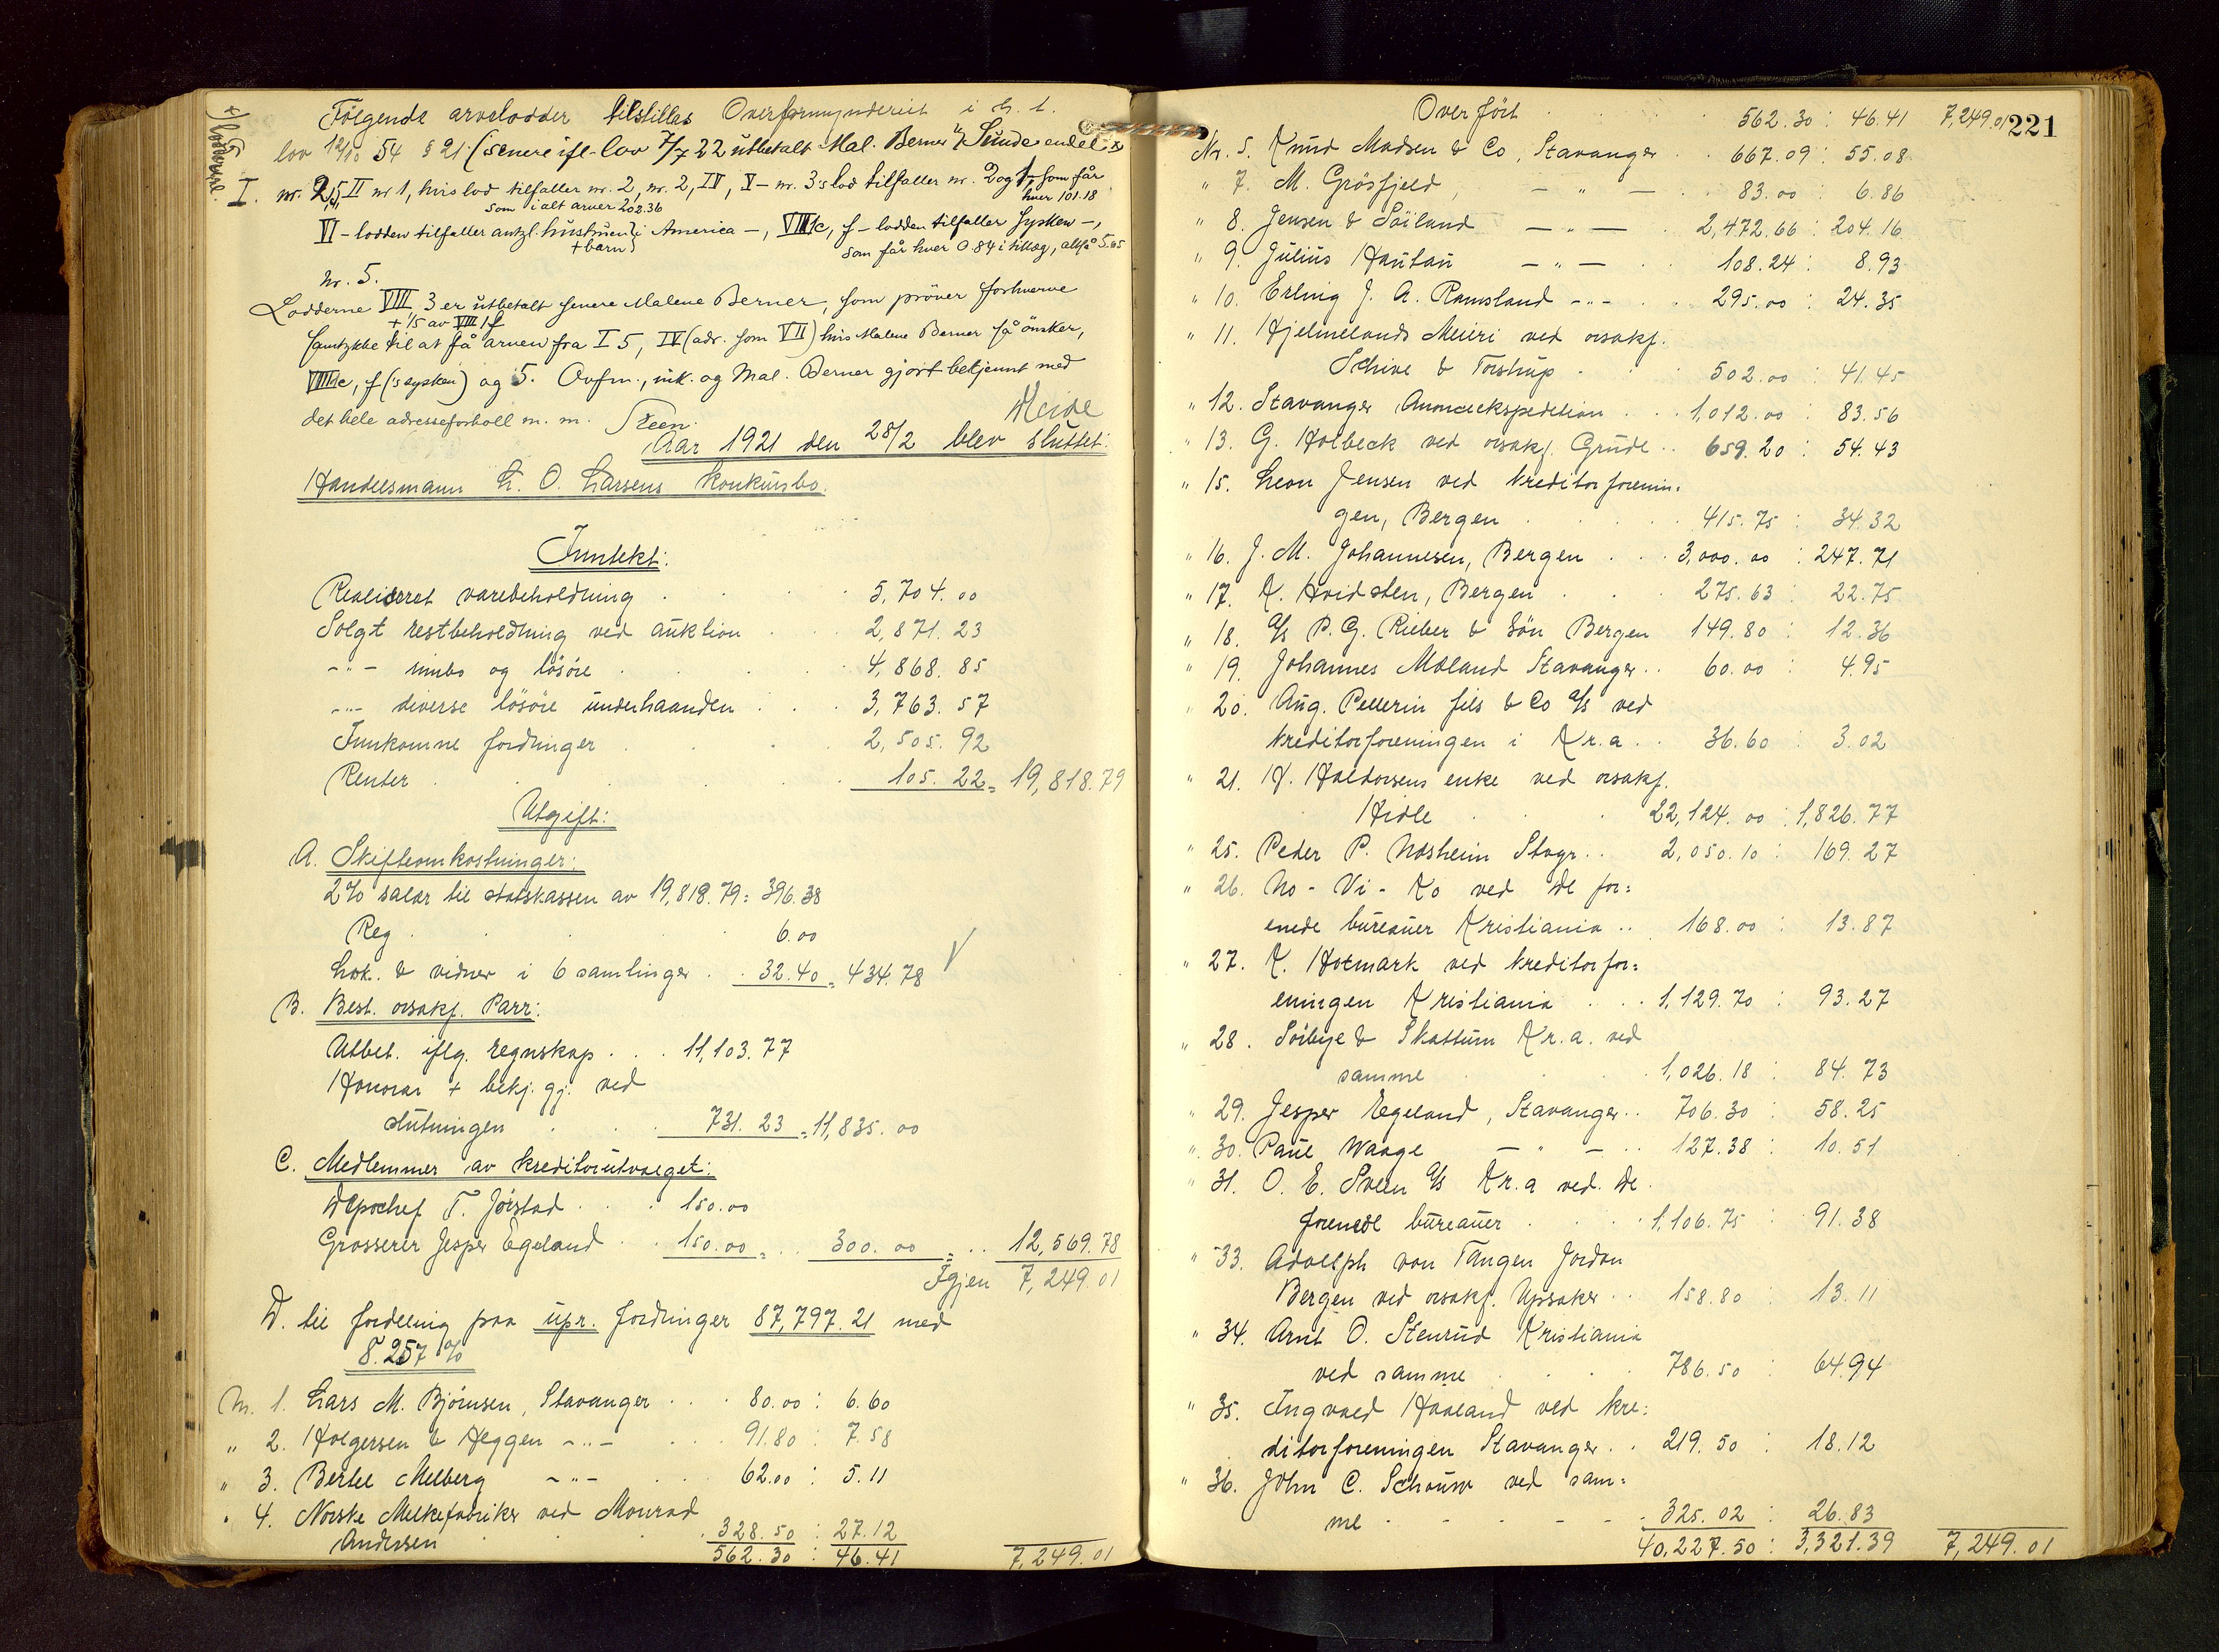 Følgende arvelodder tilstilles Overformynderiet i h. t.
lov 12/10 54 § 21 (senere ifl. lov 7/7 22 utbetalt Mal. Berner Sundes endel x
x) lodderne
I. nr. 2, 5, II nr 1, hvis lod tilfaller nr. 2, nr. 2, IV, V - nr. 3's lod tilfaller nr. 2 og 1, som får
som i alt arver 202.36 hver 101.18
VI - lodden tilfaller antgl. hustruen i America -, VIII 1c, f - lodden tilfaller sysken -,
+ barn} som får hver 0.84 i tillæg, altså 5.65
nr. 5.
Lodderne VIII 3 er utbetalt senere Malene Berner, som prøver forhverve
+ 1/5 av VIII 1 f
samtykke til at få arven fra I 5, IV (adr. som VII) hvis Malene Berner så ønsker,
VIII 1c, f (s sysken) og 5. Ovfm., ink. og Mal. Berner gjort bekjennt med
det hele adresseforholl m. m. Steen.
Heide
Aar 1921 den 28/2 blev sluttet:
Handelsmann L. O. Larsens konkursbo.
Inntekt:
Realiseret varebeholdning . . . 5,704.00
Solgt restbeholdning ved auktion . 2,871.23
-"- innbo og løsøre . . . 4,868.85
-"- diverse løsøre underhaanden . . . 3,763.57
Innkomne fordringer . . . 2,505.92
Renter . . . 105.22 = 19,818.79
Utgift:
A. Skifteomkostninger:
2% salær til statskassen av 19,818.79 = 396.38
Reg . . . 6.00
Lok. & vidner i 6 samlinger . . 32.40 = 434.78 V
B. Best. orsakf. Parr:
Utbet. iflg. regnskap . . . 11,103.77
Honorar + bekj. gj. ved
slutningen . . . 731.23 = 11,835.00
C. Medlemmer av kreditorutvalget:
Depochef T. Jørstad . . . 150.00
Grosserer Jesper Egeland . . 150.00 = . . 300.00 = . . 12,569.78
Igjen 7,249.01
D. til fordeling paa upr. fordringer 87,797.21 med
8.257 %
Nr. 1. Lars M. Bjørnsen, Stavanger . . . 80.00 : 6.60
" 2. Holgersen & Heggen -"- . . . 91.80 : 7.58
" 3. Bertel Melberg -"- . . . 62.00 : 5.11
" 4. Norske Melkefabriker ved Monrad
Andersen . . . 328.50 : 27.12
562.30 : 46.41 7,249.01
221
Overført . . . 562.30 : 46.41 7,249.01
Nr. 5. Knud Madsen & Co, Stavanger . . 667.09 : 55.08
" 7. M. Grøsfjeld, - " - . . 83.00 : 6.86
" 8. Jensen & Søiland - " - . 2,472.66 : 204.16
" 9. Julius Hautau - " - . . 108.24 : 8.93
" 10. Erling J. A. Ramsland -"- . . 295.00 : 24.35
" 11. Hjelmelands Meieri ved orsakf.
Schive & Torstrup . . . 502.00 : 41.45
" 12. Stavanger Annonceekspedition . . . 1,012.00 : 83.56
" 13. G. Holbeck ved orsakf. Grude . . 659.20 : 54.43
" 15. Leon Jensen ved kreditorforenin=
gen, Bergen . . . 415.75 : 34.32
" 16. J. M. Johannesen, Bergen . . . 3,000.00 : 247.71
" 17. K. Hvidsten, Bergen . . . 275.63 : 22.75
" 18. A/s P. G. Rieber & Søn Bergen 149.80 : 12.36
" 19. Johannes Moland Stavanger . . 60.00 : 4.95
" 20. Aug. Pellerin fils & Co A/s ved
kreditorforeningen i Kr.a . . 36.60 : 3.02
" 21. H. Haldorsens enke ved orsakf.
Hidle . . . 22,124.00 : 1,826.77
" 25. Peder P. Næsheim Stvgr. . . 2,050.10 : 169.27
" 26. No-Vi-Ko ved de for=
enede bureauer Kristiania . . 168.00 : 13.87
" 27. K. Hotmark ved kreditorfor=
eningen Kristiania . . . 1,129.70 : 93.27
" 28. Sørbye & Skattum Kr.a. ved
samme . . . 1,026.18 : 84.73
" 29. Jesper Egeland, Stavanger . . 706.30 : 58.25
" 30. Paul Waage - " - . . 127.38 : 10.51
" 31. O. E. Sveen A/s Kr.a ved. de
forenede bureauer . . . 1,106.75 : 91.38
" 33. Adolph von Tangen Jordan
Bergen ved orsakf. Upsaker . . 158.80 : 13.11
" 34. Arnt O. Stenrud Kristiania
ved samme . . . 786.50 : 64.94
" 35. Ingvald Haaland ved kre=
ditorforeningen Stavanger . . 219.50 : 18.12
" 36. John C. Schouw ved sam=
me - - - - - 325.02 : 26.83
40,227.50 : 3,321.39 7,249.01